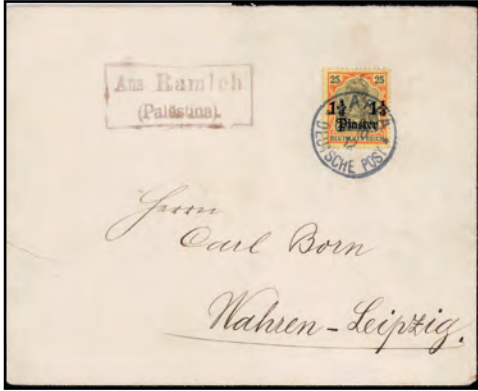 Aus Ramleh
(Palästina).
25 25
1½ 1½
Piaster
DEUTSCHES REICH
JAFFA
DEUTSCHE POST
Herrn
Carl Born
Wahren-Leipzig.